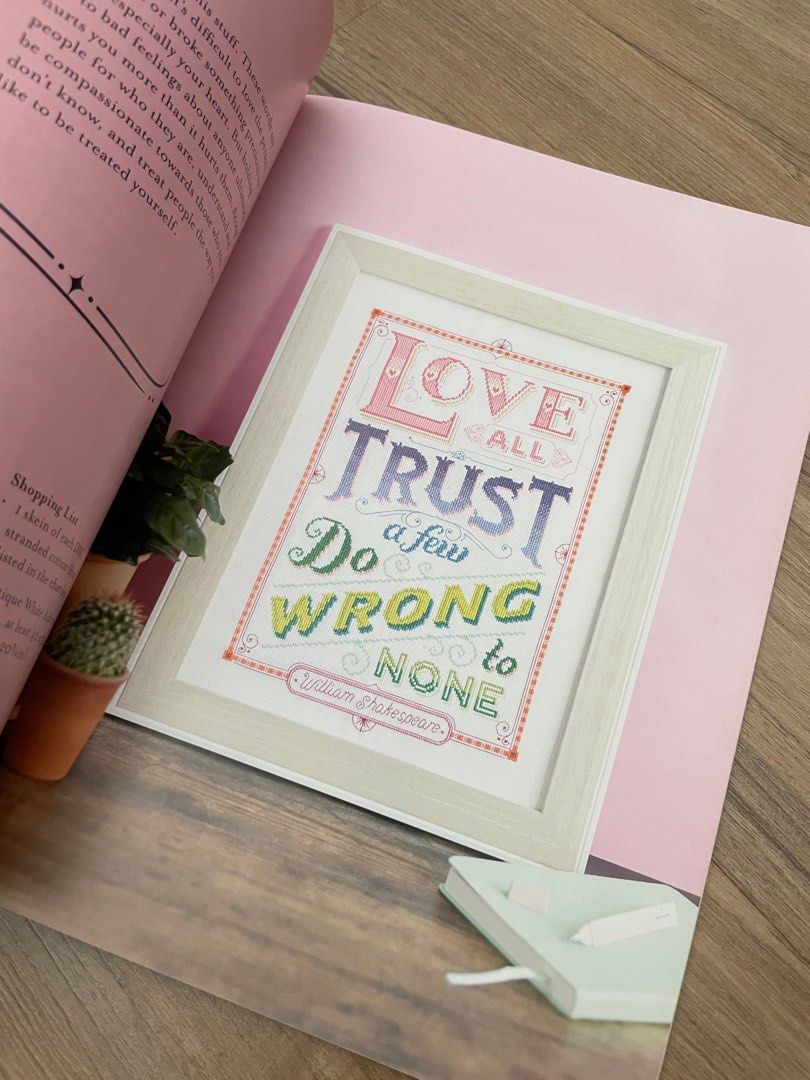 this stuff. These words
it's difficult to love the
especially your heart. But
or broke something
to bad feelings about anyone
hurts you more than it hurts them.
people for who they are, understand
be compassionate towards those who
don't know, and treat people the way
like to be treated yourself.
Shopping List
1 skein of each
stranded cotton
listed in the
White
at least
LOVE
ALL
TRUST
a few
Do
WRONG
to
NONE
William Shakespeare